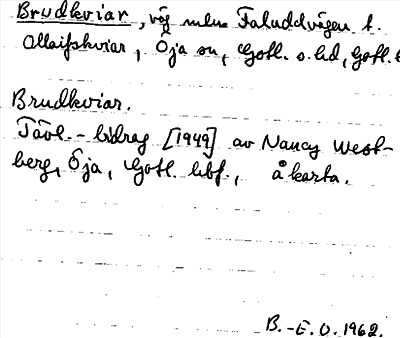 Brudkviar, väg mellan Faluddvägen t.
Allaifskviar, Öja sn, Gotl. s. hd, Gotl. l
Brudkviar.
Tävl.-bidrag [1949] av Nancy West-
berg, Öja, Gotl. hbf., å karta.
B.-E. O. 1962.